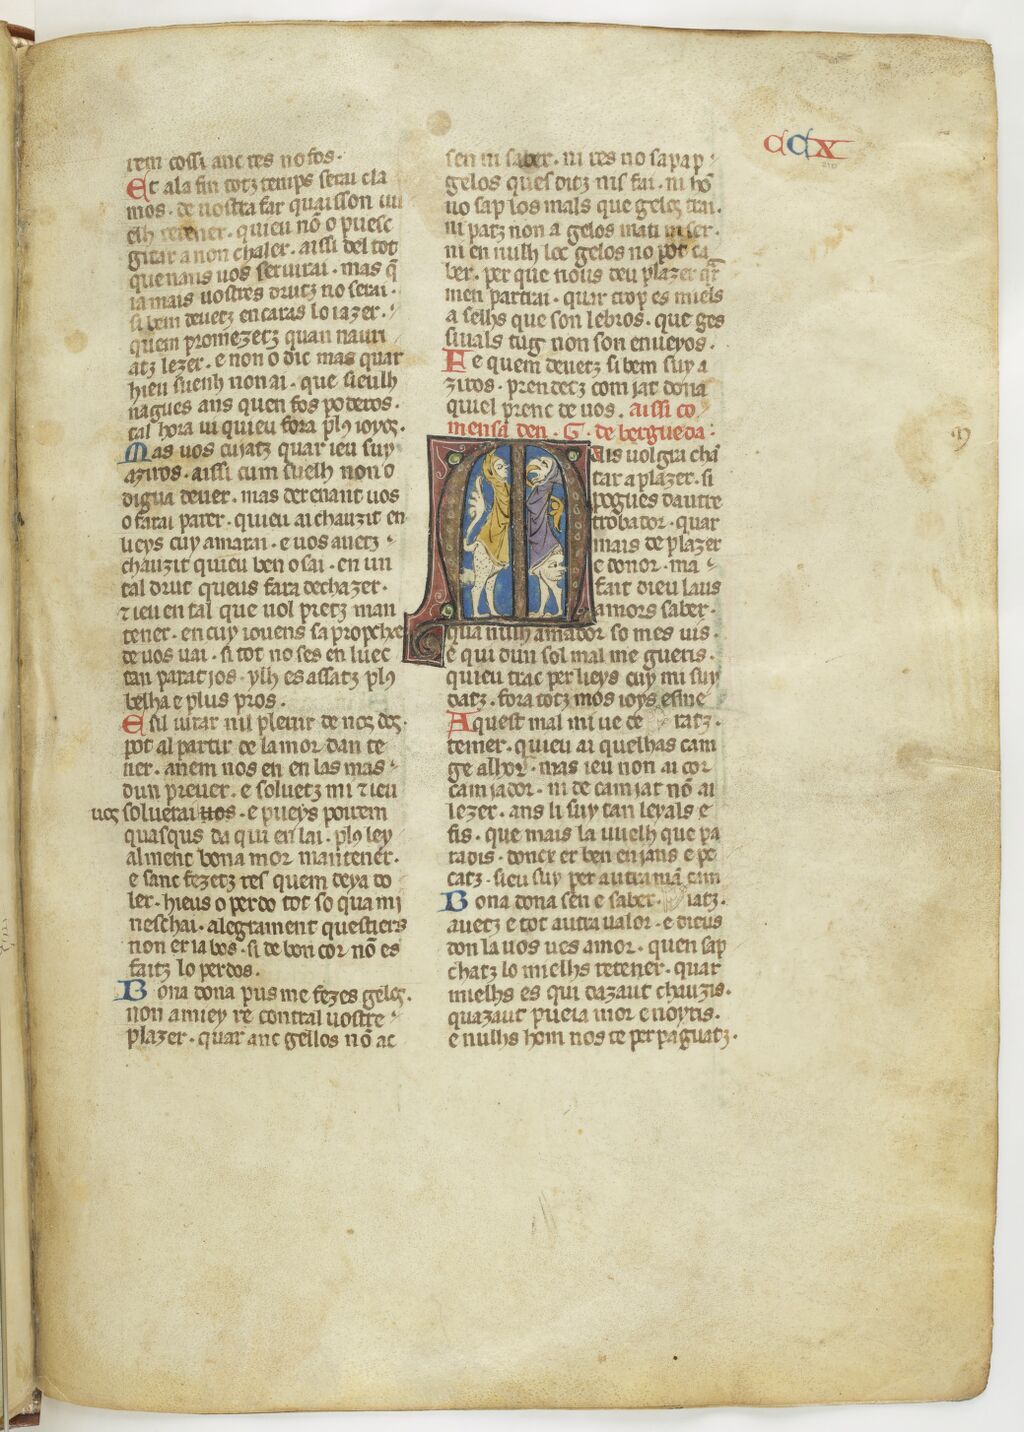 CCX
rem cossi anc res no fos.
Et ala fin totz temps serai cla
mos. de nostra far quaisson uu
elh tetener. quieu nō o puesc
gitar a non chaler. aissi del tot
que nans uos seruirai. mas q̄
ia mais uostres drutz no serai.
si bem deuetz encaras lo iazer.
quem promezetz quan nauri
atz lezer. e non o dic mas quar
hieu suenh non ai. que sieulh
nagues ans quen fos poderos.
tal hora ui quieu fora pl9 ioyos.
Mas uos cuiatz quar ieu suy
aziros. aissi cum suelh non o
digua deuer. mas derenant uos
o farai parer. quieu ai chauzit en
ueys cuy amarai. e uos auetz
chauzit quieu ben o sai. en un
tal drut queus fara dechazer.
τ ieu en tal que uol pretz man
tener. en cuy iouens sa propcha
de uos uai. si tot no ses en luec
tan paratios. ylh es assatz pl9
belha e plus pros.
E sil iurar nil pleuir de nos dos.
pot al partir de lamor dan te
ner. anem nos en en las mas
dun preuer. e soluetz mi τ ieu
uos soluerai uos. e pueys poirem
quasqus da qui en lai. pl9 ley
alment bona mor mantener.
e sanc fezetz res quem deya do
ler. hieus o perdo tot so qua mi
neschai. alegrament questiers
non er ia bos. si de bon cor nō es
faitz lo perdos.
Bona dona pus me fezes gelos.
non amiey re contral uostre
plazer. quar anc gellos nō ac
sen ni saber. ni res no sap ap
gelos ques ditz nis fai. ni hō
no sap los mals que gelos trai.
ni patz non a gelos mati ni ser.
ni en nulh loc gelos no pot ca
ber. per que nous deu plazer q̄r
men partrai. quar trop es miels
a selhs que son lebros. que ges
siuals tug non son enueyos.
E e quem deuetz si bem suy a
ziros. prendetz comjat dona
quiel prenc de uos. aissi co
mensa den. G. de berguedā:
Mais uolgra chā
tar a plazer. si
pogues dautre
trobador. quar
mais de plazer
e donor. ma
fait dieu laus
amors saber.
qua nulh amador so mes uis.
e qui dun sol mal me gueris.
quieu trac per lieys cuy mi suy
datz. fora totz mos ioys esme
Aquest mal mi ue de ratz.
temer. quieu ai quelhas cam
ge alhor. mas ieu non ai cor
camjador. ni de camjat nō ai
lezer. ans li suy tan leyals e
fis. que mais la uuelh que pa
radis. doncx er ben enjans e pe
catz. sieu suy per autra mā cam
Bona dona sen e saber. iatz.
auetz e tot autra ualor. e dieus
don la uos ues amor. quen sap
chatz lo mielhs retener. quar
mielhs es qui dazaut chauzis.
quazaut pueia mor e noyris.
e nulhs hom nos te per paguatz.